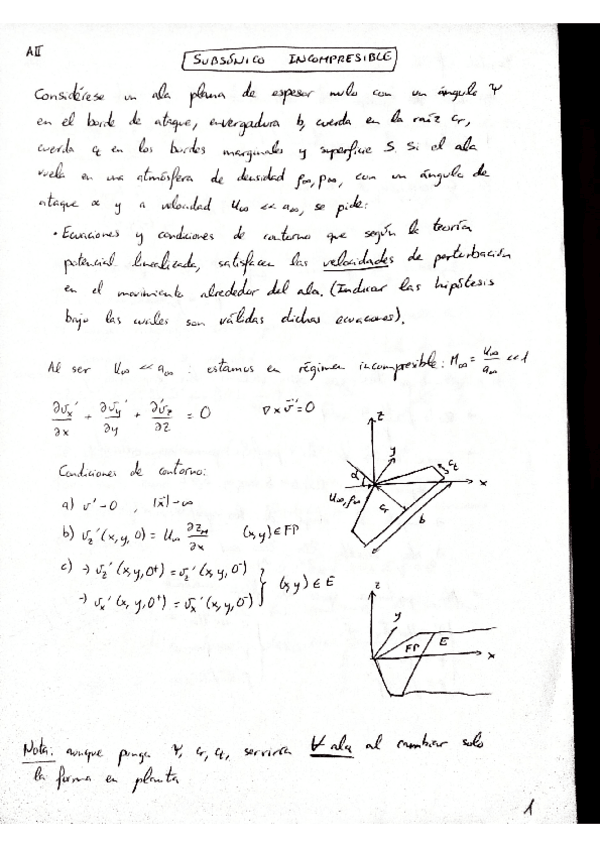 AII
SUBSÓNICO INCOMPRESIBLE
Considérese un ala plana de espesor nulo con un ángulo Ψ
en el borde de ataque, envergadura b, cuerda en la raíz cr,
cuerda ct en los bordes marginales y superficie S. Si el ala
vuela en una atmósfera de densidad ρ∞, p∞, con un ángulo de
ataque α y a velocidad U∞ << a∞, se pide:
· Ecuaciones y condiciones de contorno que según la teoría
potencial linealizada, satisfacen las velocidades de perturbación
en el movimiento alrededor del ala. (Indicar las hipótesis
bajo las cuales son válidas dichas ecuaciones).
Al ser U∞ << a∞ : estamos en régimen incompresible: M∞ = U∞/a∞ << 1
∂vx'/∂x + ∂vy'/∂y + ∂vz'/∂z = 0 ∇ x v̄' = 0
Condiciones de contorno:
a) v' → 0 , |x̄| → ∞
b) vz'(x,y,0) = U∞ ∂zM/∂x (x,y) ∈ FP
c) → vz'(x,y,0⁺) = vz'(x,y,0⁻)
→ vx'(x,y,0⁺) = vx'(x,y,0⁻) } (x,y) ∈ E
z
y
ct
α
x
U∞, ρ∞
cr
b
z
y
FP E
x
Nota: aunque ponga Ψ, cr, ct, serviría ∀ ala al cambiar solo
la forma en planta
1